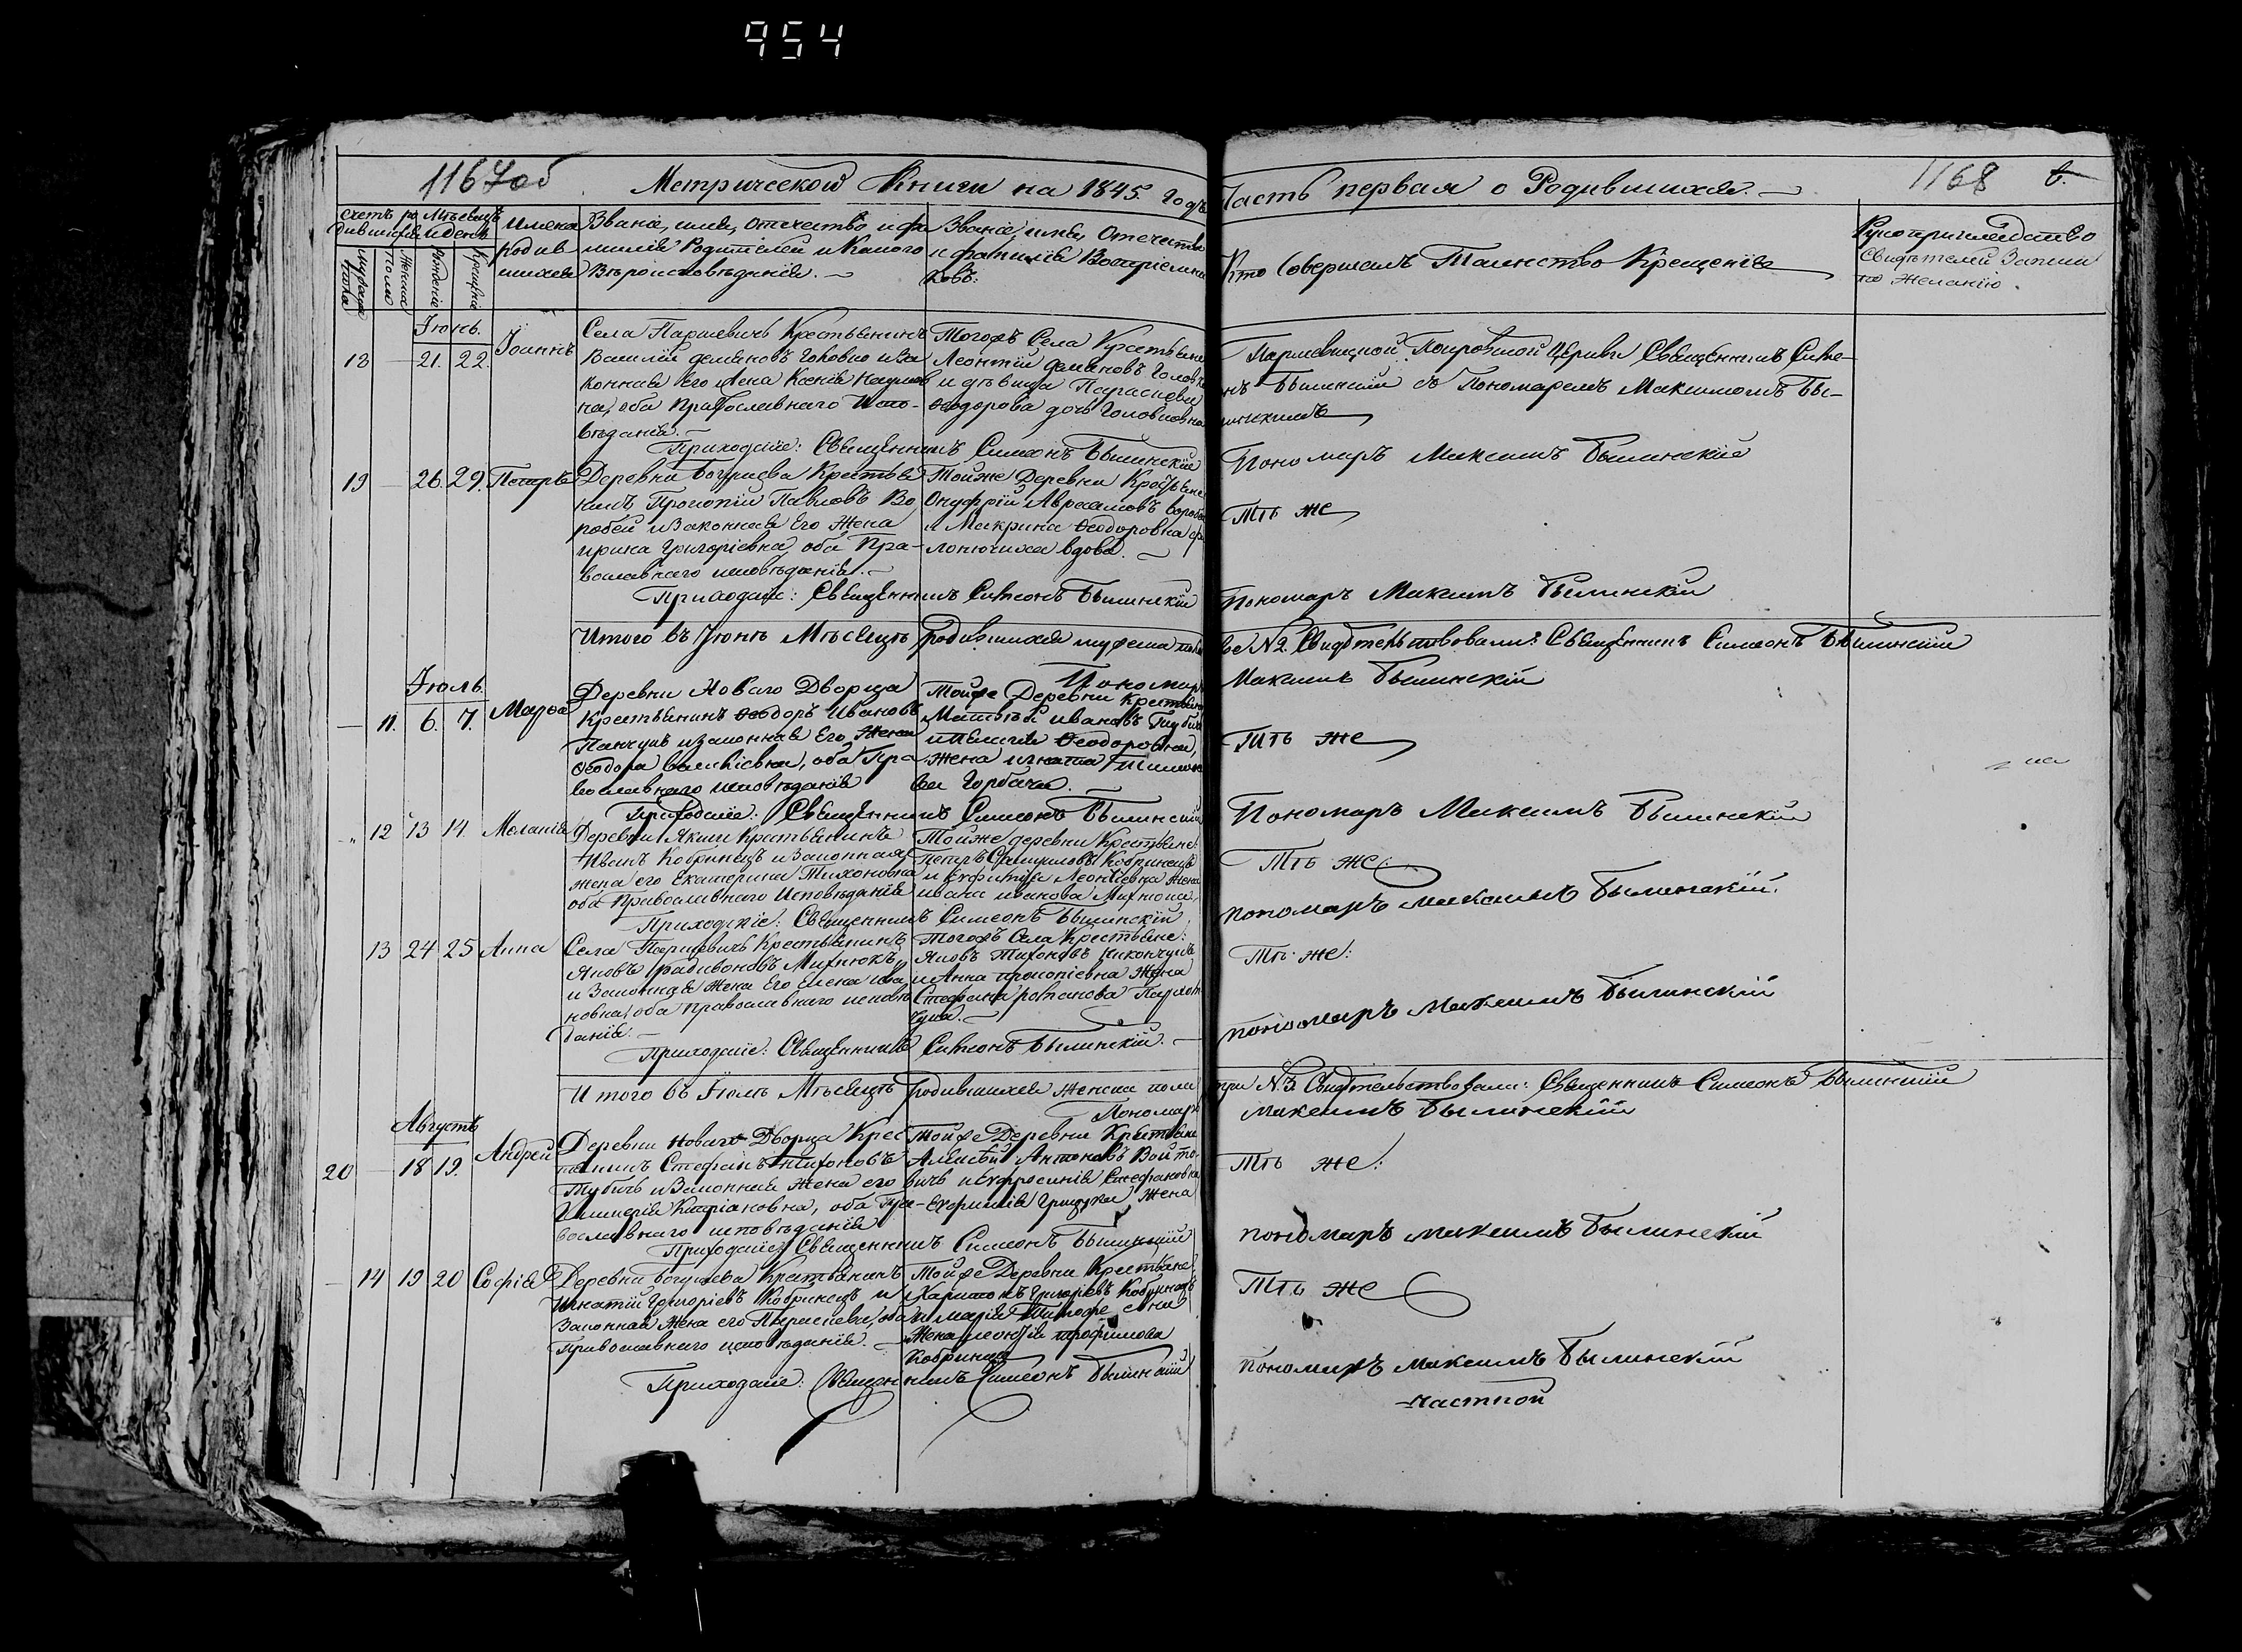 954
1167об Метрической Книги на 1845. Годъ Часть первая о Родившихся. 1168 6.
Счетъ ро дившихся
Мѣсяцъ и день
Мужеска пола
Женска Полa
Рожденіе
Крещеніе
Имена Родив шихся
Званіе, имя, Отечество, и фа
милія Родителей и Какого
Вѣроисповѣданія.
Званіе, имя, Отечество
и фамилія Воспріемни
ковъ:
Кто Совершалъ Таинство Крещенія
Рукоприкладство
Свидѣтелей Записи
по желанію.
Іюнь.
18 — 21. 22. Іоаннъ
Села Паршевичь Крестьянинъ
Василій Демяновъ Головко и за
конная Его Жена Ксенія Наумов
на, оба Православнаго Испо-
вѣданія.
Тогожъ Села Крестьяне
Леонтій Демяновъ Головко
и дѣвица Параскева
Ѳеодорова дочь Головковна
Паршевицкой Покровской Церкви Священникъ Симе-
онъ Былинскій съ Пономаремъ Максимомъ Бы-
линскимъ
Приходскіе: Священникъ Симеонъ Былинскій
Пономаръ Максимъ Былинскій
19 — 26. 29. Петръ
Деревни Богушева Крестья
нинъ Прокопій Павловъ Во
робей и Законная Его Жена
Ирина Григоріевна, оба Пра-
вославнаго исповѣданія.
Тойже Деревни Крестьяне
Онуфрій Авраамовъ Воробей
и Макрина Ѳеодоровна
вдова.
Тѣ же
Приходскіе: Священникъ Симеонъ Былинскій
Пономаръ Максимъ Былинскій
Итого въ Іюнѣ Мѣсяцѣ родившихся мужеска пола
двое №2. Свидѣтельствовали: Священникъ Симеонъ Былинскій
Пономаръ Максимъ Былинскій
Іюль.
— 11. 6. 7. Марѳа
Деревни Новаго Дворца
Крестьянинъ Ѳеодоръ Ивановъ
Панчукъ и законная Его Жена
Ѳеодора Василіевна, оба Пра
вославнаго исповѣданія
Тойже Деревни Крестьяне
Матвѣй Ивановъ
Ѳеодоровна,
Жена Игната
Горбача.
Тѣ же
Приходскіе: Священникъ Симеонъ Былинскій
Пономаръ Максимъ Былинскій
12 13 14. Меланія
Деревни Якши Крестьянинъ
Иванъ Кобринецъ и Законная
жена его Екатерина Тихоновна
оба Православнаго Исповѣданія
Тойже деревни Крестьяне:
Петръ Самуиловъ Кобринецъ
и Евфимія Леонтіевна жена
Ивана Иванова Михнюка,
Тѣ же:
Приходскіе: Священникъ Симеонъ Былинскій
пономаръ Максимъ Былинскій.
13 24 25 Анна
Села Паршевичь Крестьянинъ
Яковъ Радивоновъ Михнюкъ,
и Законная Жена Его Елена Ива
новна, оба Православнаго исповѣ
данія.
Тогожъ Села Крестьяне:
Яковъ Тихоновъ Никончукъ
и Анна Прокопіевна Жена
Стефана Романова
Тѣ же:
Приходскіе: Священникъ Симеонъ Былинскій.
пономаръ Максимъ Былинскій
Итого въ Іюлѣ Мѣсяцѣ родившихся Женска пола
три №3. Свидѣтельствовали: Священникъ Симеонъ Былинскій
Пономаръ Максимъ Былинскій
Августъ
20 — 18 19. Андрей
Деревни Новаго Дворца Крес
тьянинъ Стефанъ Тихоновъ
и Законная Жена его
Кипріановна, оба Пра-
вославнаго исповѣданія
Тойже Деревни Крестьяне
Алексѣй Антоновъ Войто
вичь и Евфросинія Стефановна
Жена
Тѣ же:
Приходскіе: Священникъ Симеонъ Былинскій
пономаръ Максимъ Былинскій
— 14 19 20 Софія
Деревни Богушева Крестьянинъ
Игнатій Григоріевъ Кобринецъ и
Законная Жена его Параскева, оба
Православнаго исповѣданія.
Тойже Деревни Крестьяне
Харитонъ Григоріевъ Кобринецъ
и Марія
Жена Леонтія Трофимова
Кобринца
Тѣ же
Приходскіе: Священникъ Симеонъ Былинскій
пономаръ Максимъ Былинскій